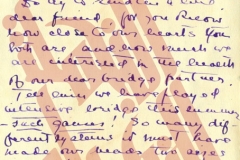 so kindred & dear
dear friend, for you know
how close to our hearts you
both are and how much we
are interested in the health
of our dear bridge partner.
Yes our we have played
intensive bridge this summer
- Such games! So many dif
ferent systems it must have
made our heads two ages